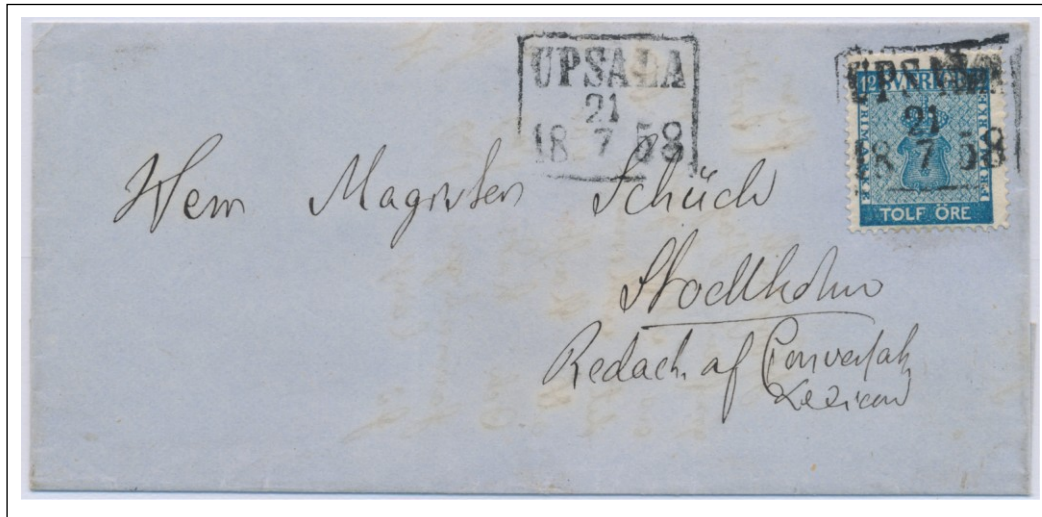 UPSALA
21
18 7 58
12 SVERIGE
UPSALA
21
18 7 58
FRIMÄRKE
FRIMÄRKE
TOLF ÖRE
Herrn Magister Schück
Stockholm
Redact. af Conversat.
Lexicon